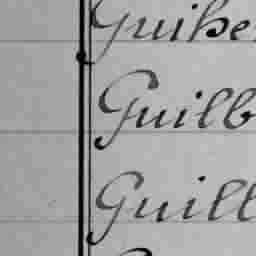 Guihe
Guilb
Guill